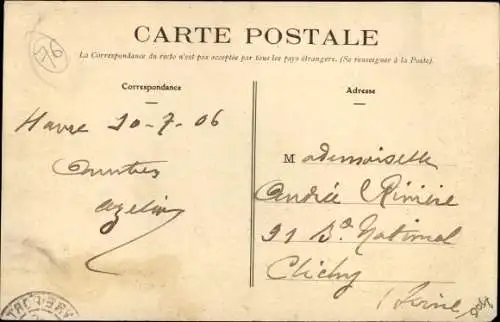 76
CARTE POSTALE
La Correspondance du recto n'est pas acceptée par tous les pays étrangers. (Se renseigner à la Poste).
Correspondance
Adresse
Havre 10-7-06
Mademoiselle
Andrée Rivière
91 Bd National
Clichy
Seine